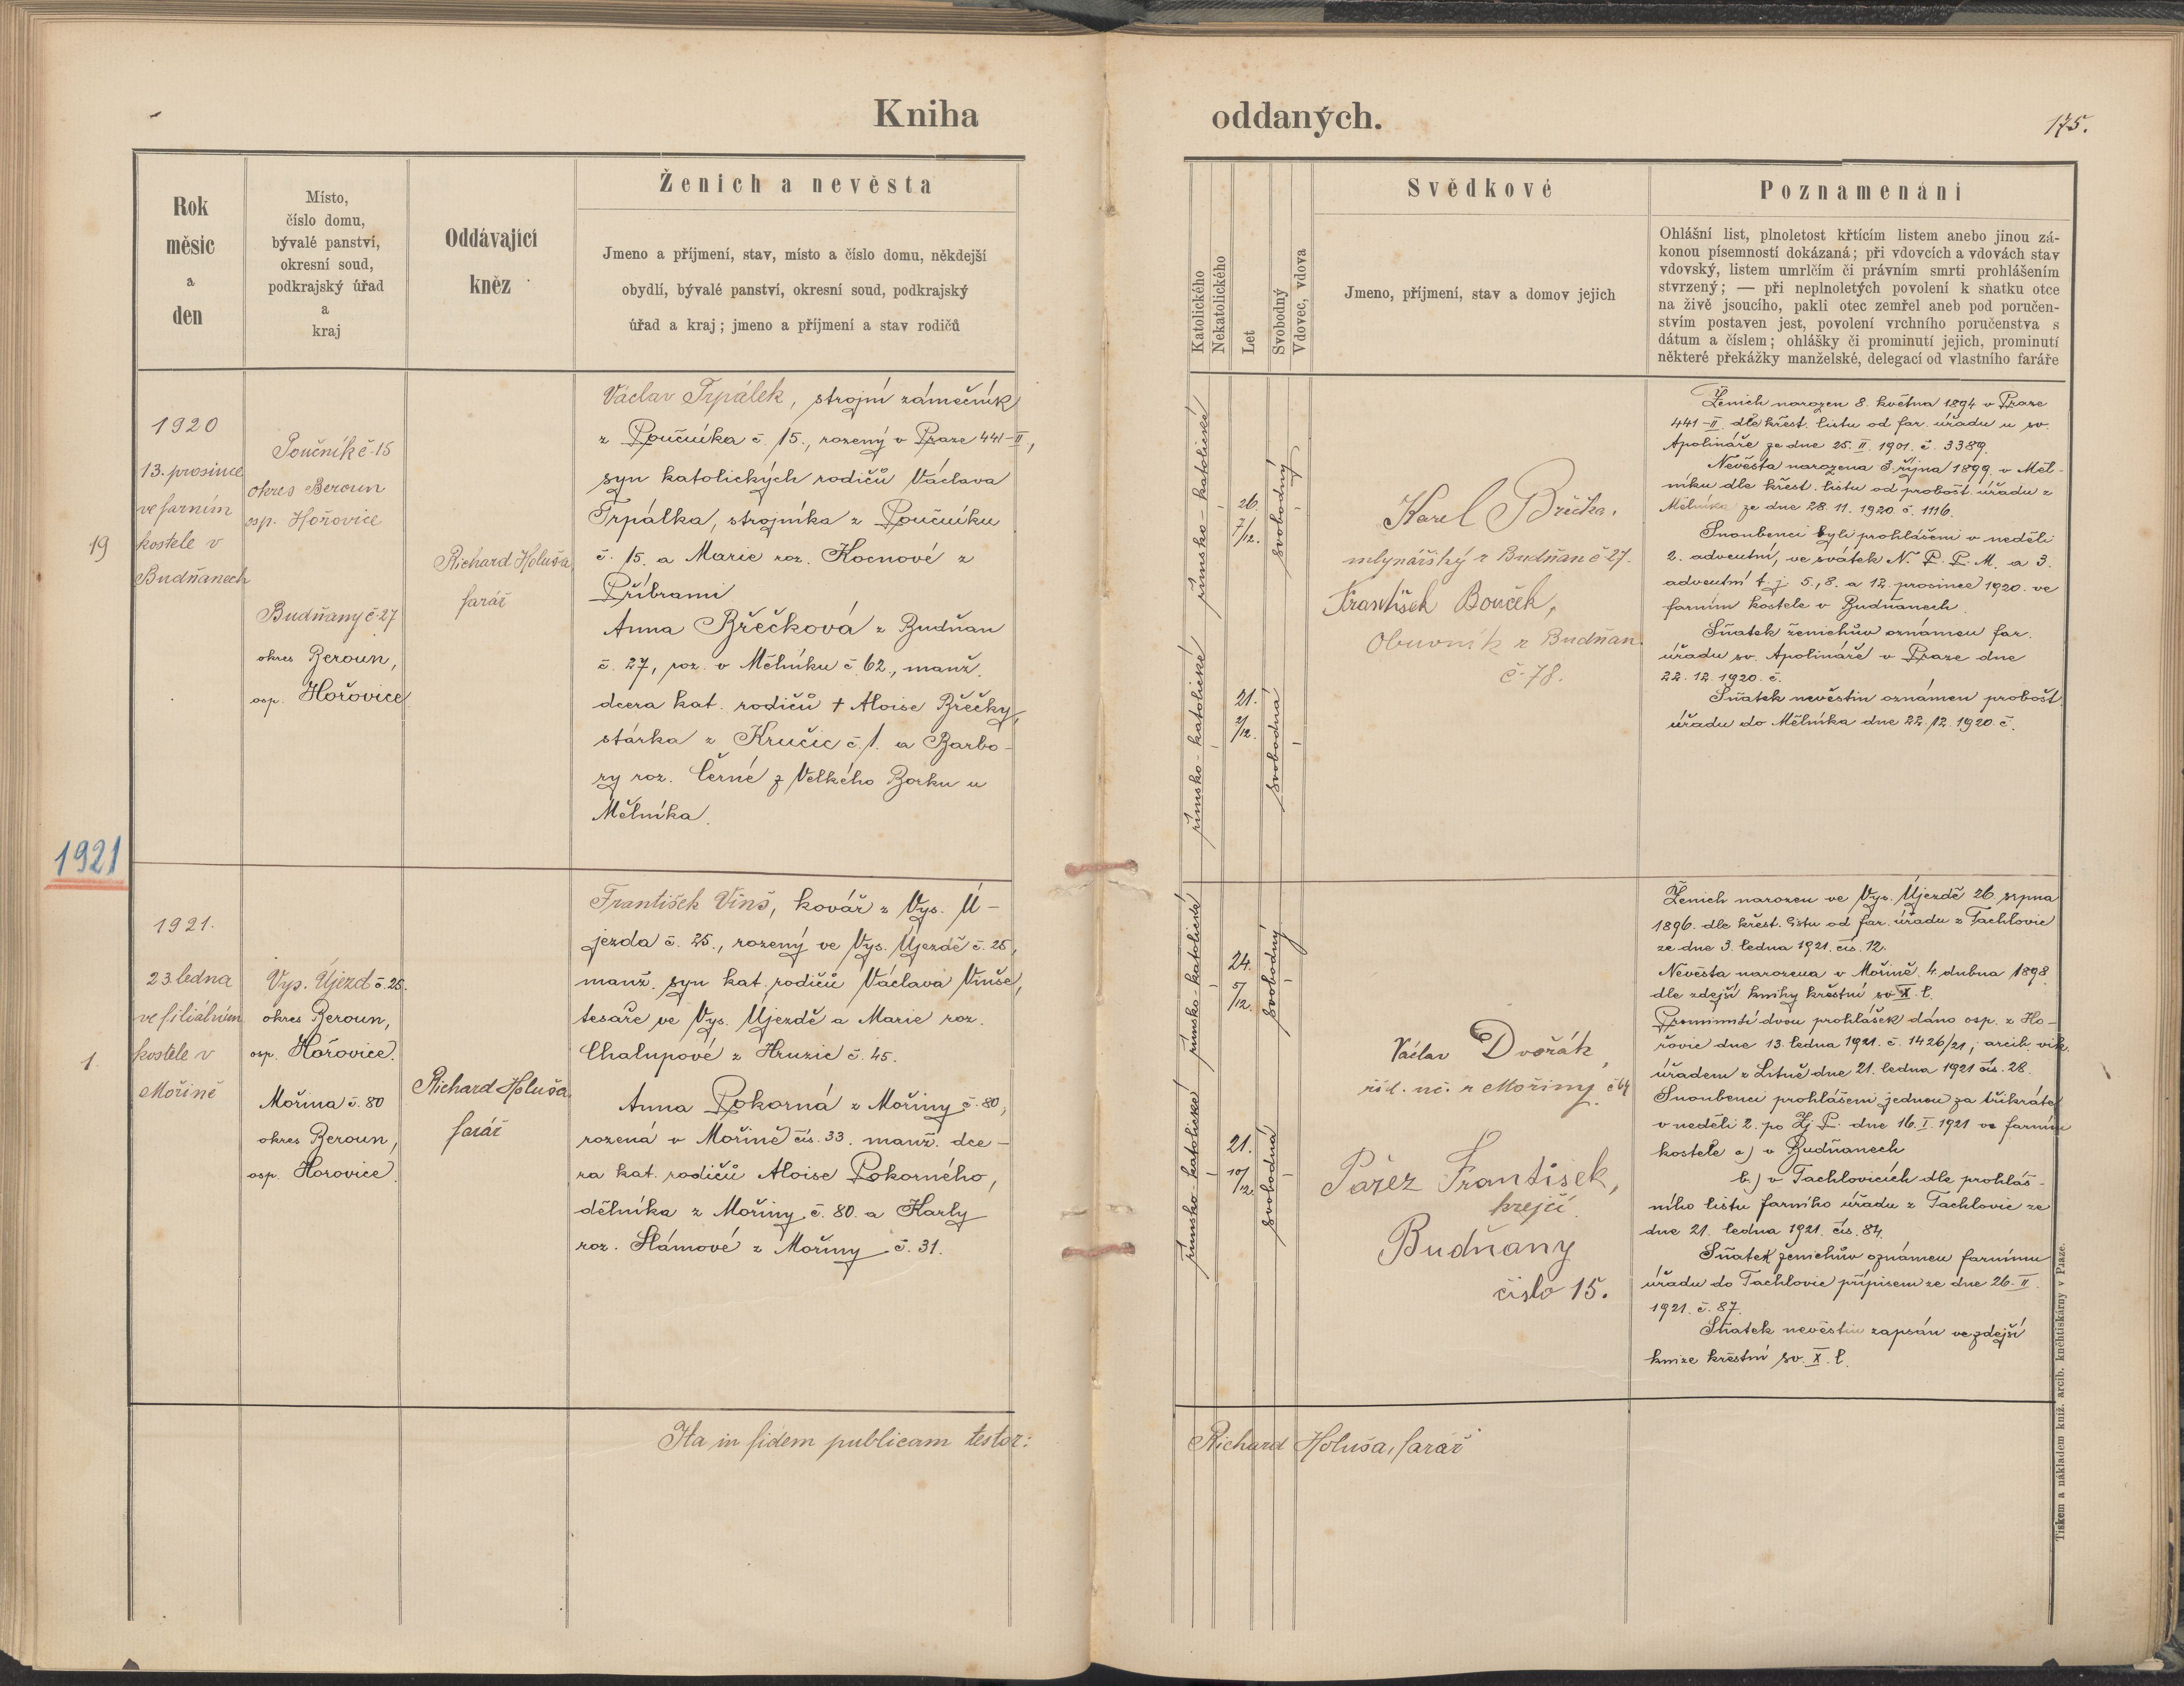 Kniha
oddaných.
175.
Rok
měsíc
a
den
Místo,
číslo domu,
bývalé panství,
okresní soud,
podkrajský úřad
a
kraj
Oddávající
kněz
Ženich a nevěsta
Jmeno a příjmení, stav, místo a číslo domu, někdejší
obydlí, bývalé panství, okresní soud, podkrajský
úřad a kraj; jmeno a příjmení a stav rodičů
Katolického
Nekatolického
Let
Svobodný
Vdovec, vdova
Svědkové
Jmeno, příjmení, stav a domov jejich
Poznamenání
Ohlášní list, plnoletost křtícím listem anebo jinou zá-
konou písemností dokázaná; při vdovcích a vdovách stav
vdovský, listem umrlčím či právním smrti prohlášením
stvrzený; — při neplnoletých povolení k sňatku otce
na živě jsoucího, pakli otec zemřel aneb pod poručen-
stvím postaven jest, povolení vrchního poručenstva s
dátum a číslem; ohlášky či prominutí jejich, prominutí
některé překážky manželské, delegací od vlastního faráře
19
1920
13. prosince
ve farním
kostele v
Budňanech
Poučník č. 15
okres Beroun
osp. Hořovice
Budňany č. 27
okres Beroun,
osp. Hořovice
Richard Holuša,
farář
Václav Trpálek, strojní zámečník
z Poučníka č. 15., rozený v Praze 441-II,
syn katolických rodičů Václava
Trpálka, strojníka z Poučníku
č. 15. a Marie roz. Kocnové z
Příbrami
Anna Břečková z Budňan
č. 27, roz. v Mělníku č. 62., manž.
dcera kat. rodičů + Aloise Břečky,
stárka z Kručic č. 1. a Barbo-
ry roz. Černé z Velkého Borku u
Mělníka.
římsko-katolické
26.
7/12.
svobodný
římsko-katolické
21.
2/12.
svobodná
Karel Břečka,
mlynářský z Budňan č 27.
František Bouček,
Obuvník z Budňan
č. 78.
Ženich narozen 8. května 1894 v Praze
441-II. dle křest. listu od far. úřadu u sv.
Apolináře ze dne 25. II. 1901. č. 3389.
Nevěsta narozena 3. října 1899. v Měl-
níku dle křest. listu od probošt. úřadu z
Mělníka ze dne 28. 11. 1920. č. 1116.
Snoubenci byli prohlášeni v neděli
2. adventní, ve svátek N. P. P. M. a 3.
adventní t. j. 5., 8. a 12. prosince 1920. ve
farním kostele v Budňanech.
Sňatek ženichův oznámen far.
úřadu sv. Apolináře v Praze dne
22. 12. 1920. č.
Sňatek nevěstin oznámen probošt.
úřadu do Mělníka dne 22. 12. 1920. č.
1921
1.
1921.
23. ledna
ve filiálním
kostele v
Mořině
Vys. Újezd č. 25.
okres Beroun,
osp. Hořovice.
Mořina č. 80
okres Beroun,
osp. Hořovice.
Richard Holuša,
farář
František Vinš, kovář z Vys. Ú-
jezda č. 25., rozený ve Vys. Újezdě č. 25,
manž. syn kat. rodičů Václava Vinše,
tesaře ve Vys. Újezdě a Marie roz.
Chalupové z Hruzic č. 45.
Anna Pokorná z Mořiny č. 80,
rozená v Mořině čís. 33. manž. dce-
ra kat. rodičů Aloise Pokorného,
dělníka z Mořiny č. 80. a Karly
roz. Slámové z Mořiny č. 31.
římsko-katolické
24.
5/12.
svobodný
římsko-katolické
21.
10/12.
svobodná
Václav Dvořák,
říd. uč. z Mořiny č 64
Pařez František,
krejčí
Budňany
číslo 15.
Ženich narozen ve Vys. Újezdě 26. srpna
1896. dle křest. listu od far. úřadu z Tachlovic
ze dne 3. ledna 1921. čís. 12.
Nevěsta narozena v Mořině 4. dubna 1898.
dle zdejší knihy křestní sv. X. l.
Prominutí dvou prohlášek dáno osp. z Ho-
řovic dne 13. ledna 1921. č. 1426/21; arcib. vik.
úřadem z Litně dne 21. ledna 1921 čís. 28.
Snoubenci prohlášeni jednou za třikráte
v neděli 2. po Zj. P. dne 16. I. 1921 ve farním
kostele a) v Budňanech
b.) v Tachlovicích dle prohláš-
ního listu farního úřadu z Tachlovic ze
dne 21. ledna 1921. čís. 84.
Sňatek ženichův oznámen farnímu
úřadu do Tachlovic přípisem ze dne 26. II.
1921. č. 87.
Sňatek nevěstin zapsán ve zdejší
knize křestní sv. X. l.
Ita in fidem publicam testor:
Richard Holuša, farář
Tiskem a nákladem kníž. arcib. knihtiskárny v Praze.